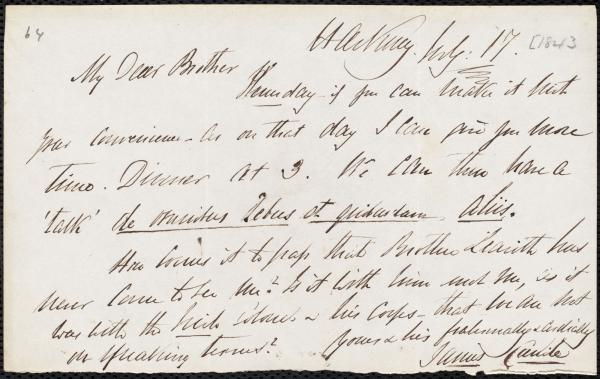 64
Hackney. July. 17. [1843
My Dear Brother
Thursday - if you can make it suit
your convenience - as on that day I can give you more
time. Dinner at 3. We can then have a
'talk' de omnibus rebus et quibusdam aliis.
How comes it to pass that Brother Leavitt has
never come to see me? Is it with him and me, as it
was with the Irish Colonel & his Corps - that we are not
on speaking terms?
Yours & his fraternally & cordially
James